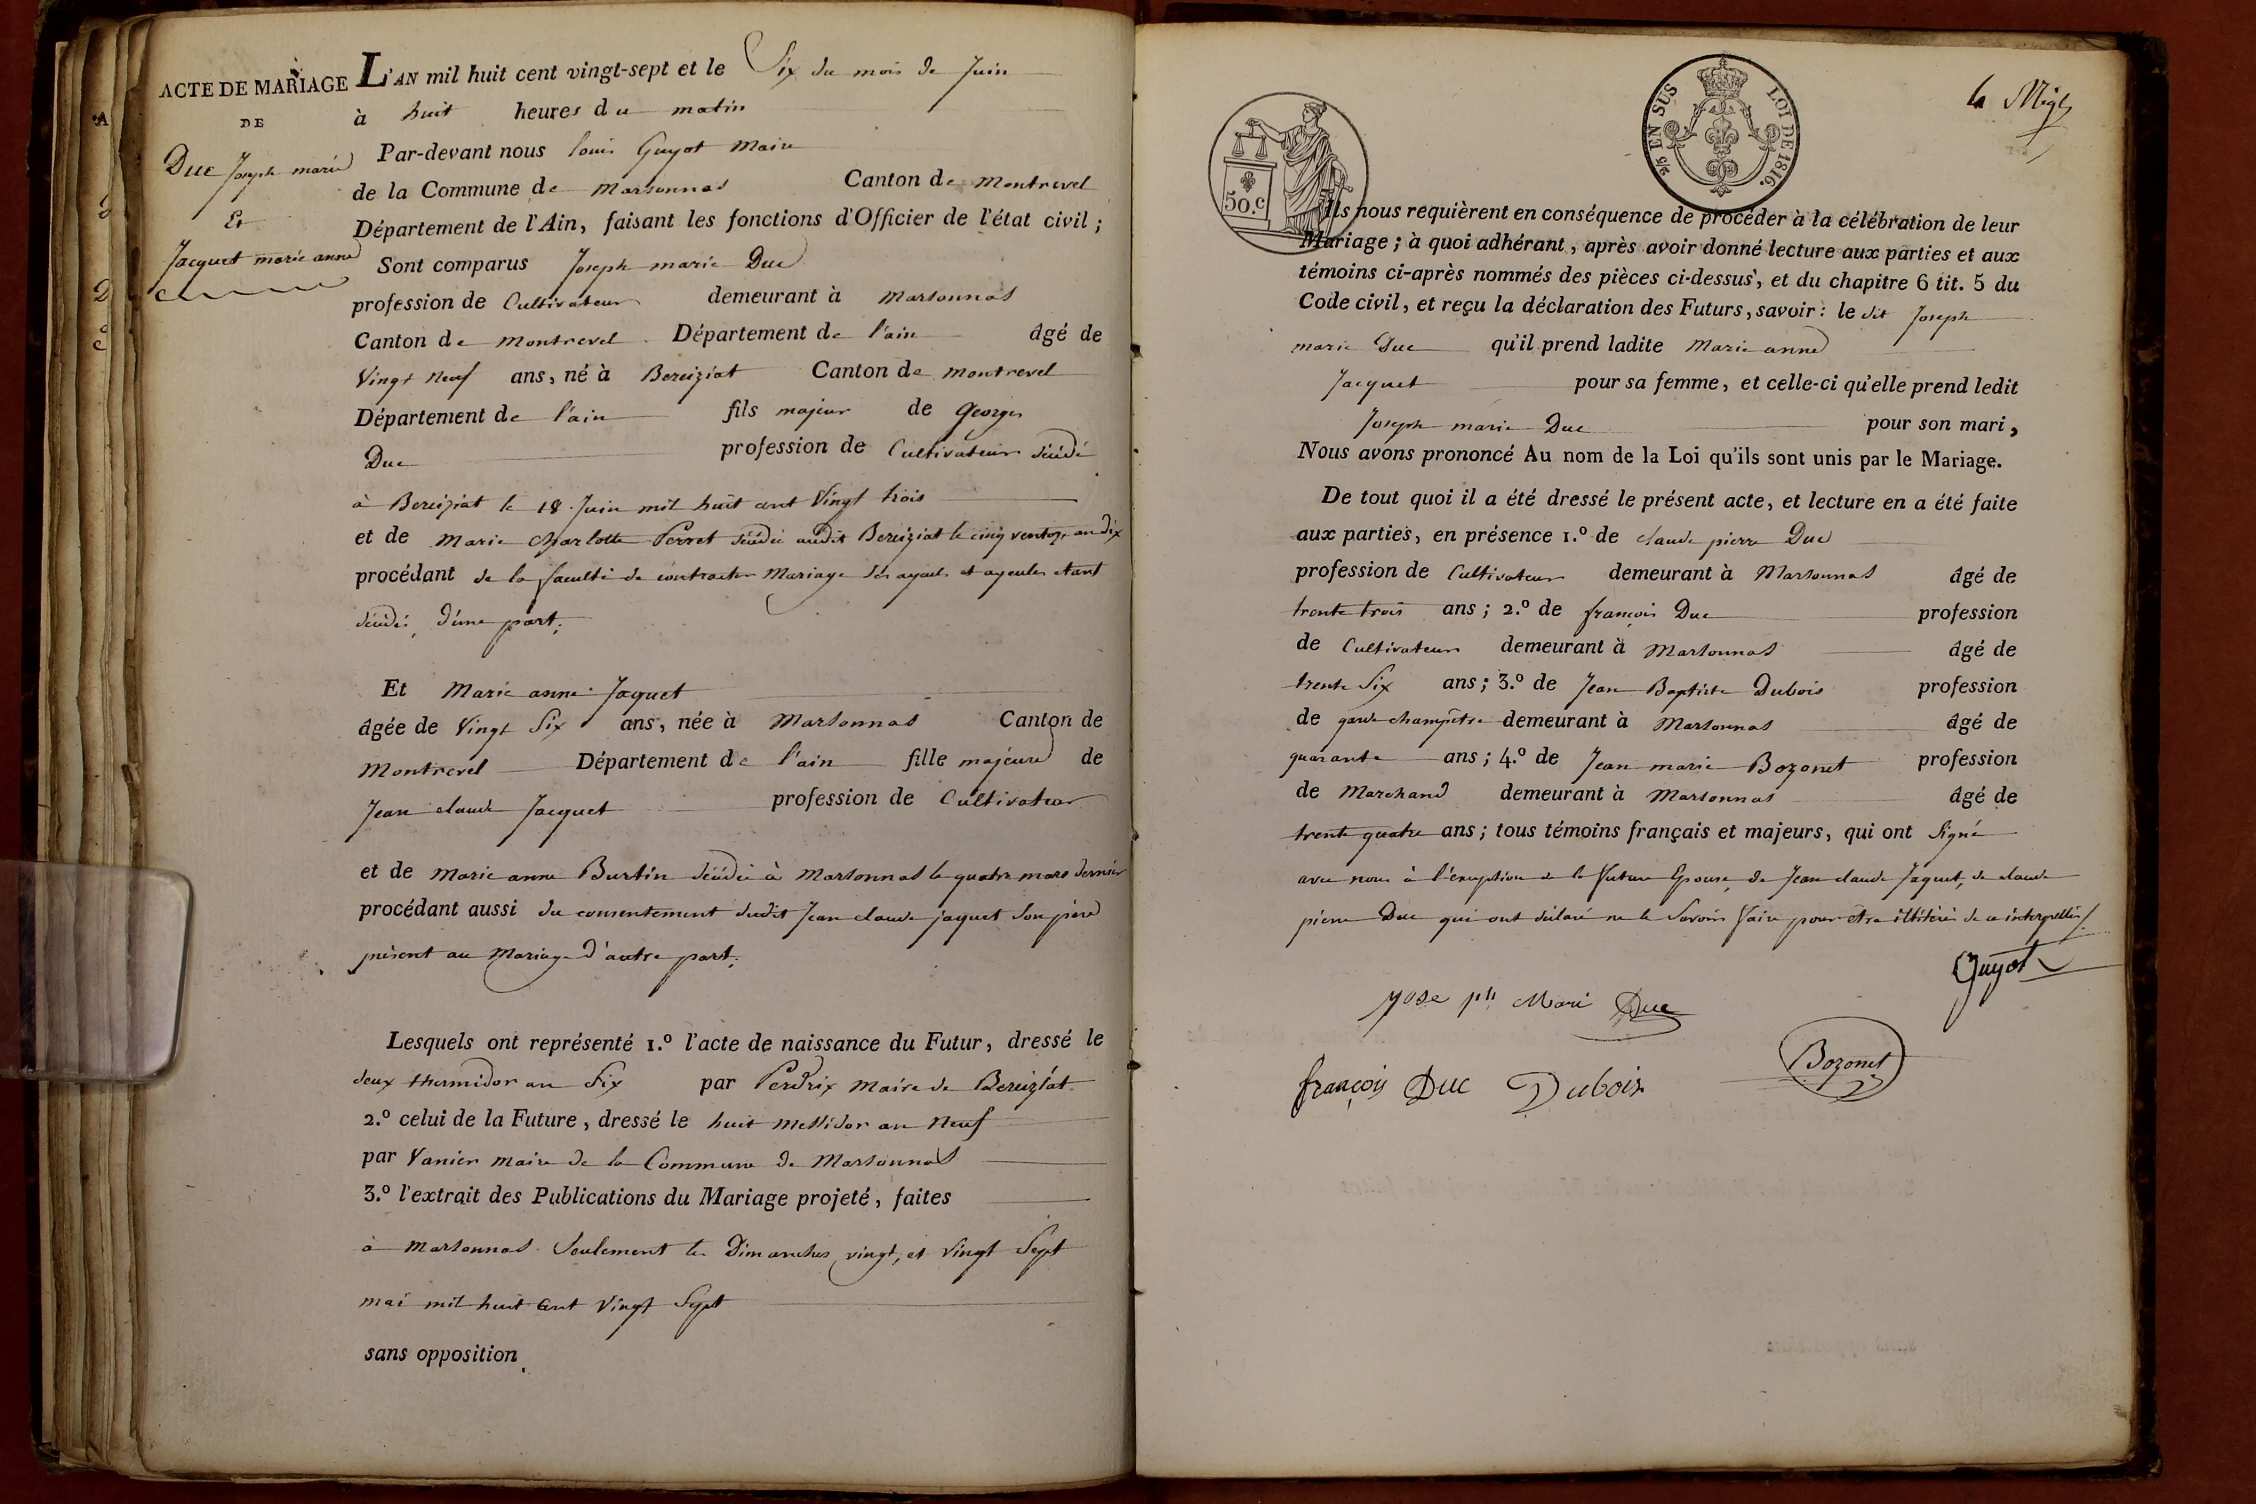 ACTE DE MARIAGE
DE
Duc Joseph marie
Et
Jacquet marie anne
L'AN mil huit cent vingt-sept et le Six du mois de Juin
à huit heures du matin
Par-devant nous louis Guyot Maire
de la Commune de Marsonnas Canton de Montrevel
Département de l'Ain, faisant les fonctions d'Officier de l'état civil ;
Sont comparus Joseph marie Duc
profession de Cultivateur demeurant à Marsonnas
Canton de Montrevel Département de l'ain âgé de
Vingt Neuf ans, né à Bereiziat Canton de montrevel
Département de l'ain fils majeur de Georges
Duc profession de Cultivateur décédé
à Bereiziat le 18 Juin mil huit cent Vingt trois
et de Marie Charlotte Perret décédée audit Bereiziat le cinq ventoze an dix
procédant de la faculté de contracter Mariage ses ayeuls et ayeules étant
décédés d'une part ;
Et Marie anne Jaquet
âgée de Vingt Six ans, née à Marsonnas Canton de
Montrevel Département de l'ain fille majeure de
Jean claude Jacquet profession de Cultivateur
et de Marie anne Burtin décédée à Marsonnas le quatre mars dernier
procédant aussi du consentement dudit Jean claude jaquet son père
présent au Mariage d'autre part ;
Lesquels ont représenté 1.º l'acte de naissance du Futur, dressé le
deux thermidor an Six par Perdrix Maire de Bereiziat
2.º celui de la Future, dressé le huit Messidor an Neuf
par Vanier maire de la Commune de Marsonnas
3.º l'extrait des Publications du Mariage projeté, faites
à Marsonnas Seulement les Dimanches vingt, et Vingt Sept
mai mil huit cent Vingt Sept
sans opposition
50.C
2/5 EN SUS LOI DE 1816.
Ils nous requièrent en conséquence de procéder à la célébration de leur
Mariage ; à quoi adhérant, après avoir donné lecture aux parties et aux
témoins ci-après nommés des pièces ci-dessus, et du chapitre 6 tit. 5 du
Code civil, et reçu la déclaration des Futurs, savoir : le dit Joseph
marie Duc qu'il prend ladite Marie anne
Jacquet pour sa femme, et celle-ci qu'elle prend ledit
Joseph marie Duc pour son mari,
Nous avons prononcé Au nom de la Loi qu'ils sont unis par le Mariage.
De tout quoi il a été dressé le présent acte, et lecture en a été faite
aux parties, en présence 1.º de claude pierre Duc
profession de Cultivateur demeurant à Marsonnas âgé de
trente trois ans ; 2.º de françois Duc profession
de Cultivateur demeurant à Marsonnas âgé de
trente Six ans ; 3.º de Jean Baptiste Dubois profession
de garde champêtre demeurant à Marsonnas âgé de
quarante ans ; 4.º de Jean marie Bozonet profession
de Marchand demeurant à Marsonnas âgé de
trente quatre ans ; tous témoins français et majeurs, qui ont Signé
avec nous à l'exeption de la Future Epouse, de Jean claude Jaquet, de claude
pierre Duc qui ont déclaré ne le Savoir faire pour être illitérés de ce interpellés
Guyot
Yose ph Mari Duc
françois Duc Dubois Bozonet